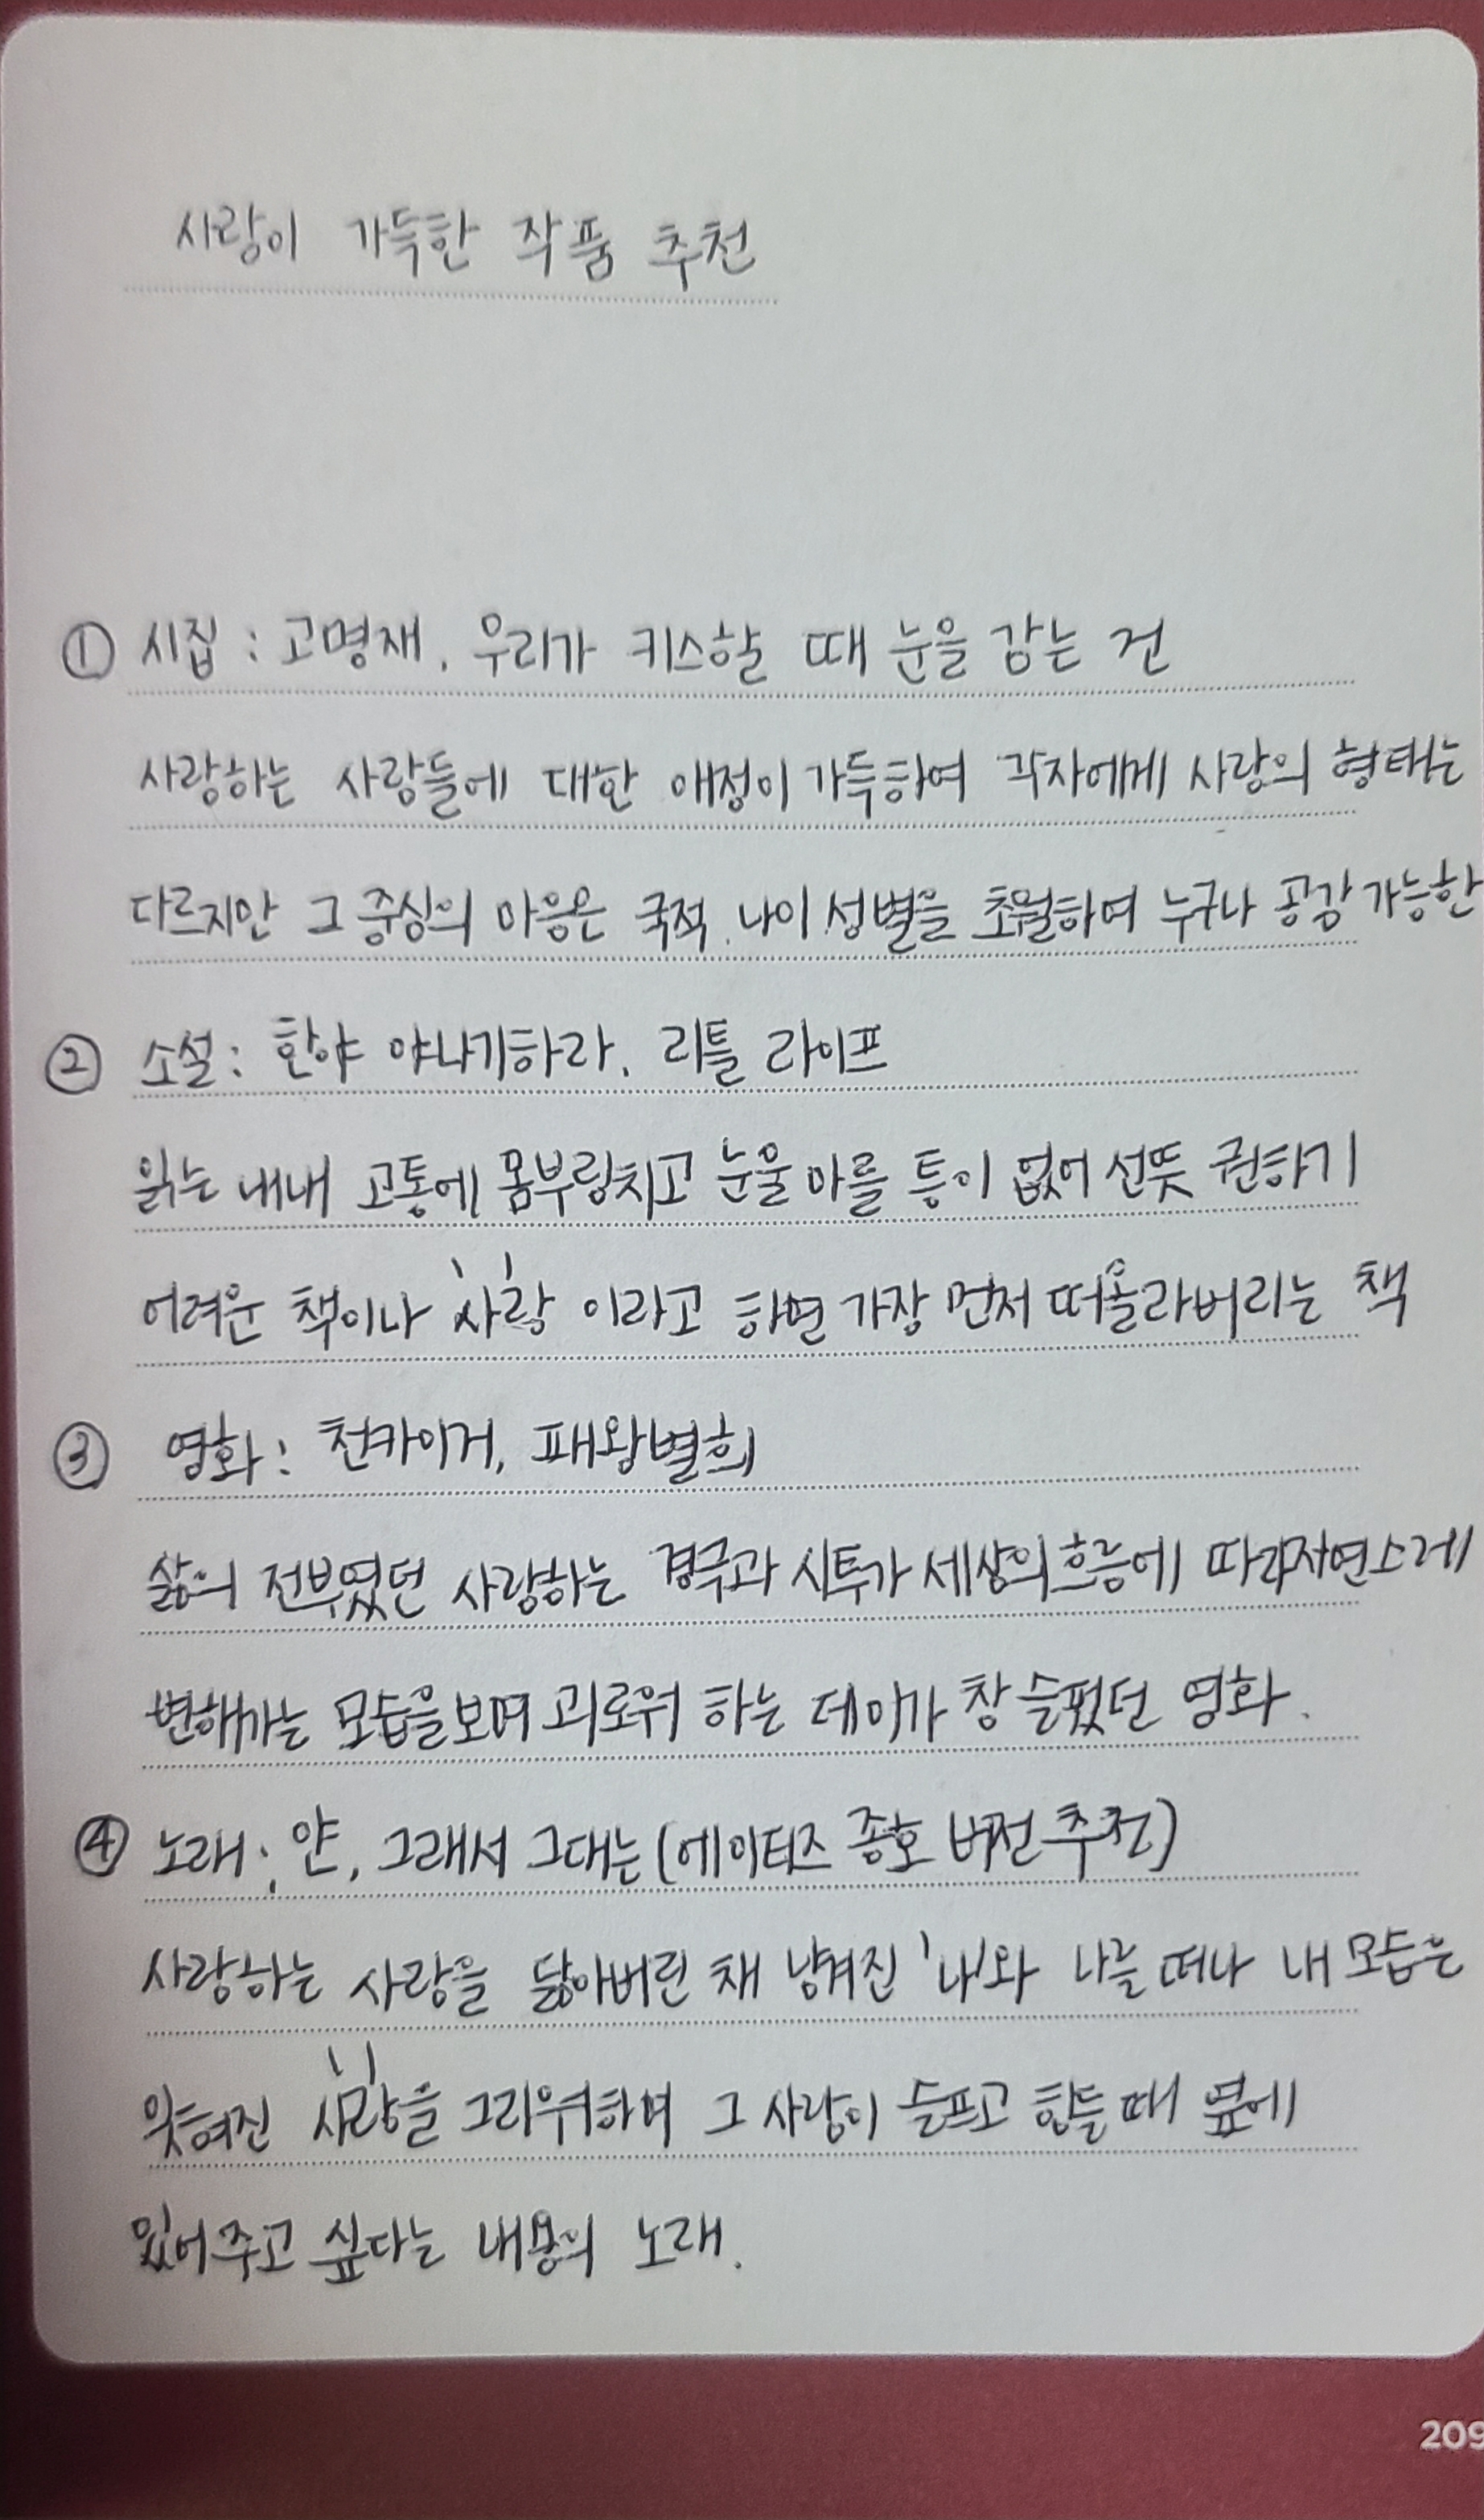 사랑이 가득한 작품 추천
① 시집 : 고명재, 우리가 키스할 때 눈을 감는 건
사랑하는 사람들에 대한 애정이 가득하여 각자에게 사랑의 형태는
다르지만 그 중심의 마음은 국적, 나이 성별을 초월하여 누구나 공감 가능한
② 소설 : 한야 야나기하라, 리틀 라이프
읽는 내내 고통에 몸부림치고 눈물 마를 틈이 없어 선뜻 권하기
어려운 책이나 '사랑' 이라고 하면 가장 먼저 떠올라버리는 책
③ 영화 : 천카이거, 패왕별희
삶의 전부였던 사랑하는 경극과 시투가 세상의 흐름에 따라 자연스레
변해가는 모습을 보며 괴로워 하는 데이가 참 슬펐던 영화.
④ 노래 : 얀, 그래서 그대는 (에이티즈 종호 버전 추천)
사랑하는 사람을 닮아버린 채 남겨진 '나'와 나를 떠나 내 모습은
잊혀진 '사람'을 그리워하며 그 사람이 슬프고 힘들 때 곁에
있어주고 싶다는 내용의 노래.
209